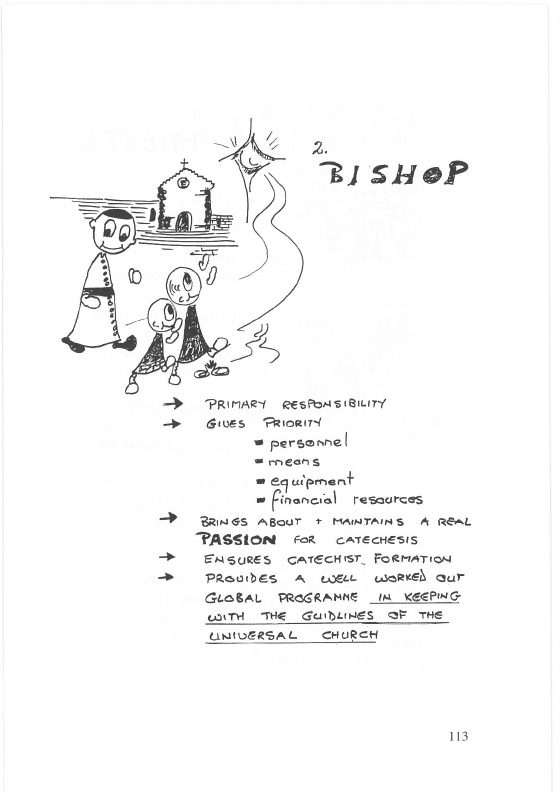 2.
BISHOP
→ PRIMARY RESPONSIBILITY
→ GIVES PRIORITY
▪ personnel
▪ means
▪ equipment
▪ financial resources
→ BRINGS ABOUT + MAINTAINS A REAL
PASSION FOR CATECHESIS
→ ENSURES CATECHIST FORMATION
→ PROVIDES A WELL WORKED OUT
GLOBAL PROGRAMNE IN KEEPING
WITH THE GUIDLINES OF THE
UNIVERSAL CHURCH
113